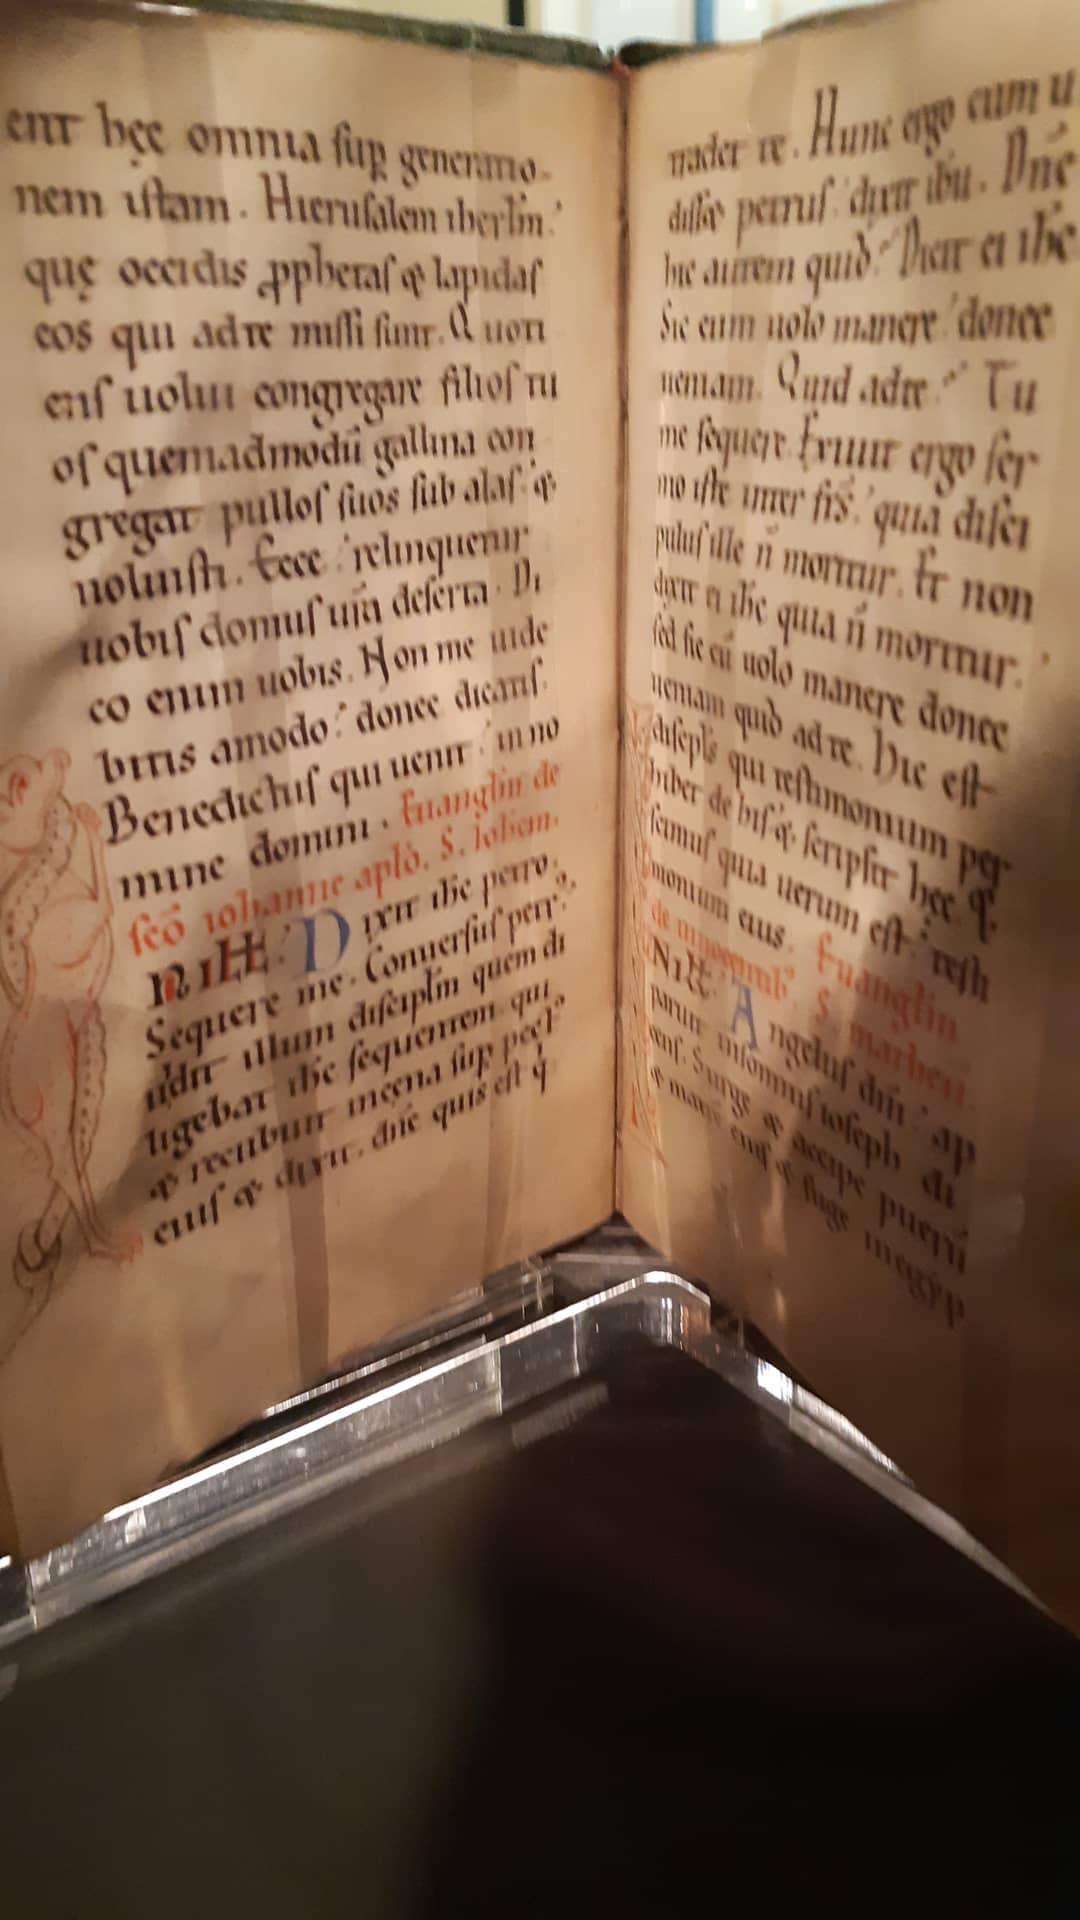 ent hęc omnia sup generatio-
nem istam. Hierusalem iherlm.
quę occidis ꝓphetas & lapidas
eos qui ad te missi sunt. Quoti
ens uolui congregare filios tu
os quemadmodū gallina con
gregat pullos suos sub alas. &
noluisti. Ecce relinquetur
uobis domus ura deserta. Di
co enim uobis. Non me uide
bitis amodo donec dicatis.
Benedictus qui uenit in no
mine domini. Euanglm de
sco iohanne aplo. S. Iohem.
N ILĿT. Dixit ihc petro.
Sequere me. Conuersus petr
uidit illum discipłm quem di
ligebat ihc sequentem. qui
& recubuit in cena sup pect
eius & dixit. dne quis est q
tradet te. Hunc ergo cum u
disse petrus. dixit ihu. Dne
hic autem quid. Dicit ei ihc
Sic eum uolo manere donec
ueniam. Quid ad te. Tu
me sequere. Exiuit ergo ser
mo iste inter frs. quia disci
pulus ille n̄ moritur. Et non
dixit ei ihc quia n̄ moritur.
sed sic eū uolo manere donec
ueniam quid ad te. Hic est
discipls qui testimonium per
hibet de his & scripsit hęc &
scimus quia uerum est testi
monium eius. Euanglm
de S. matheū.
Angelus dni ap
paruit in somnis ioseph di
cens. Surge & accipe puerū
& matrē eius & fuge in egyp